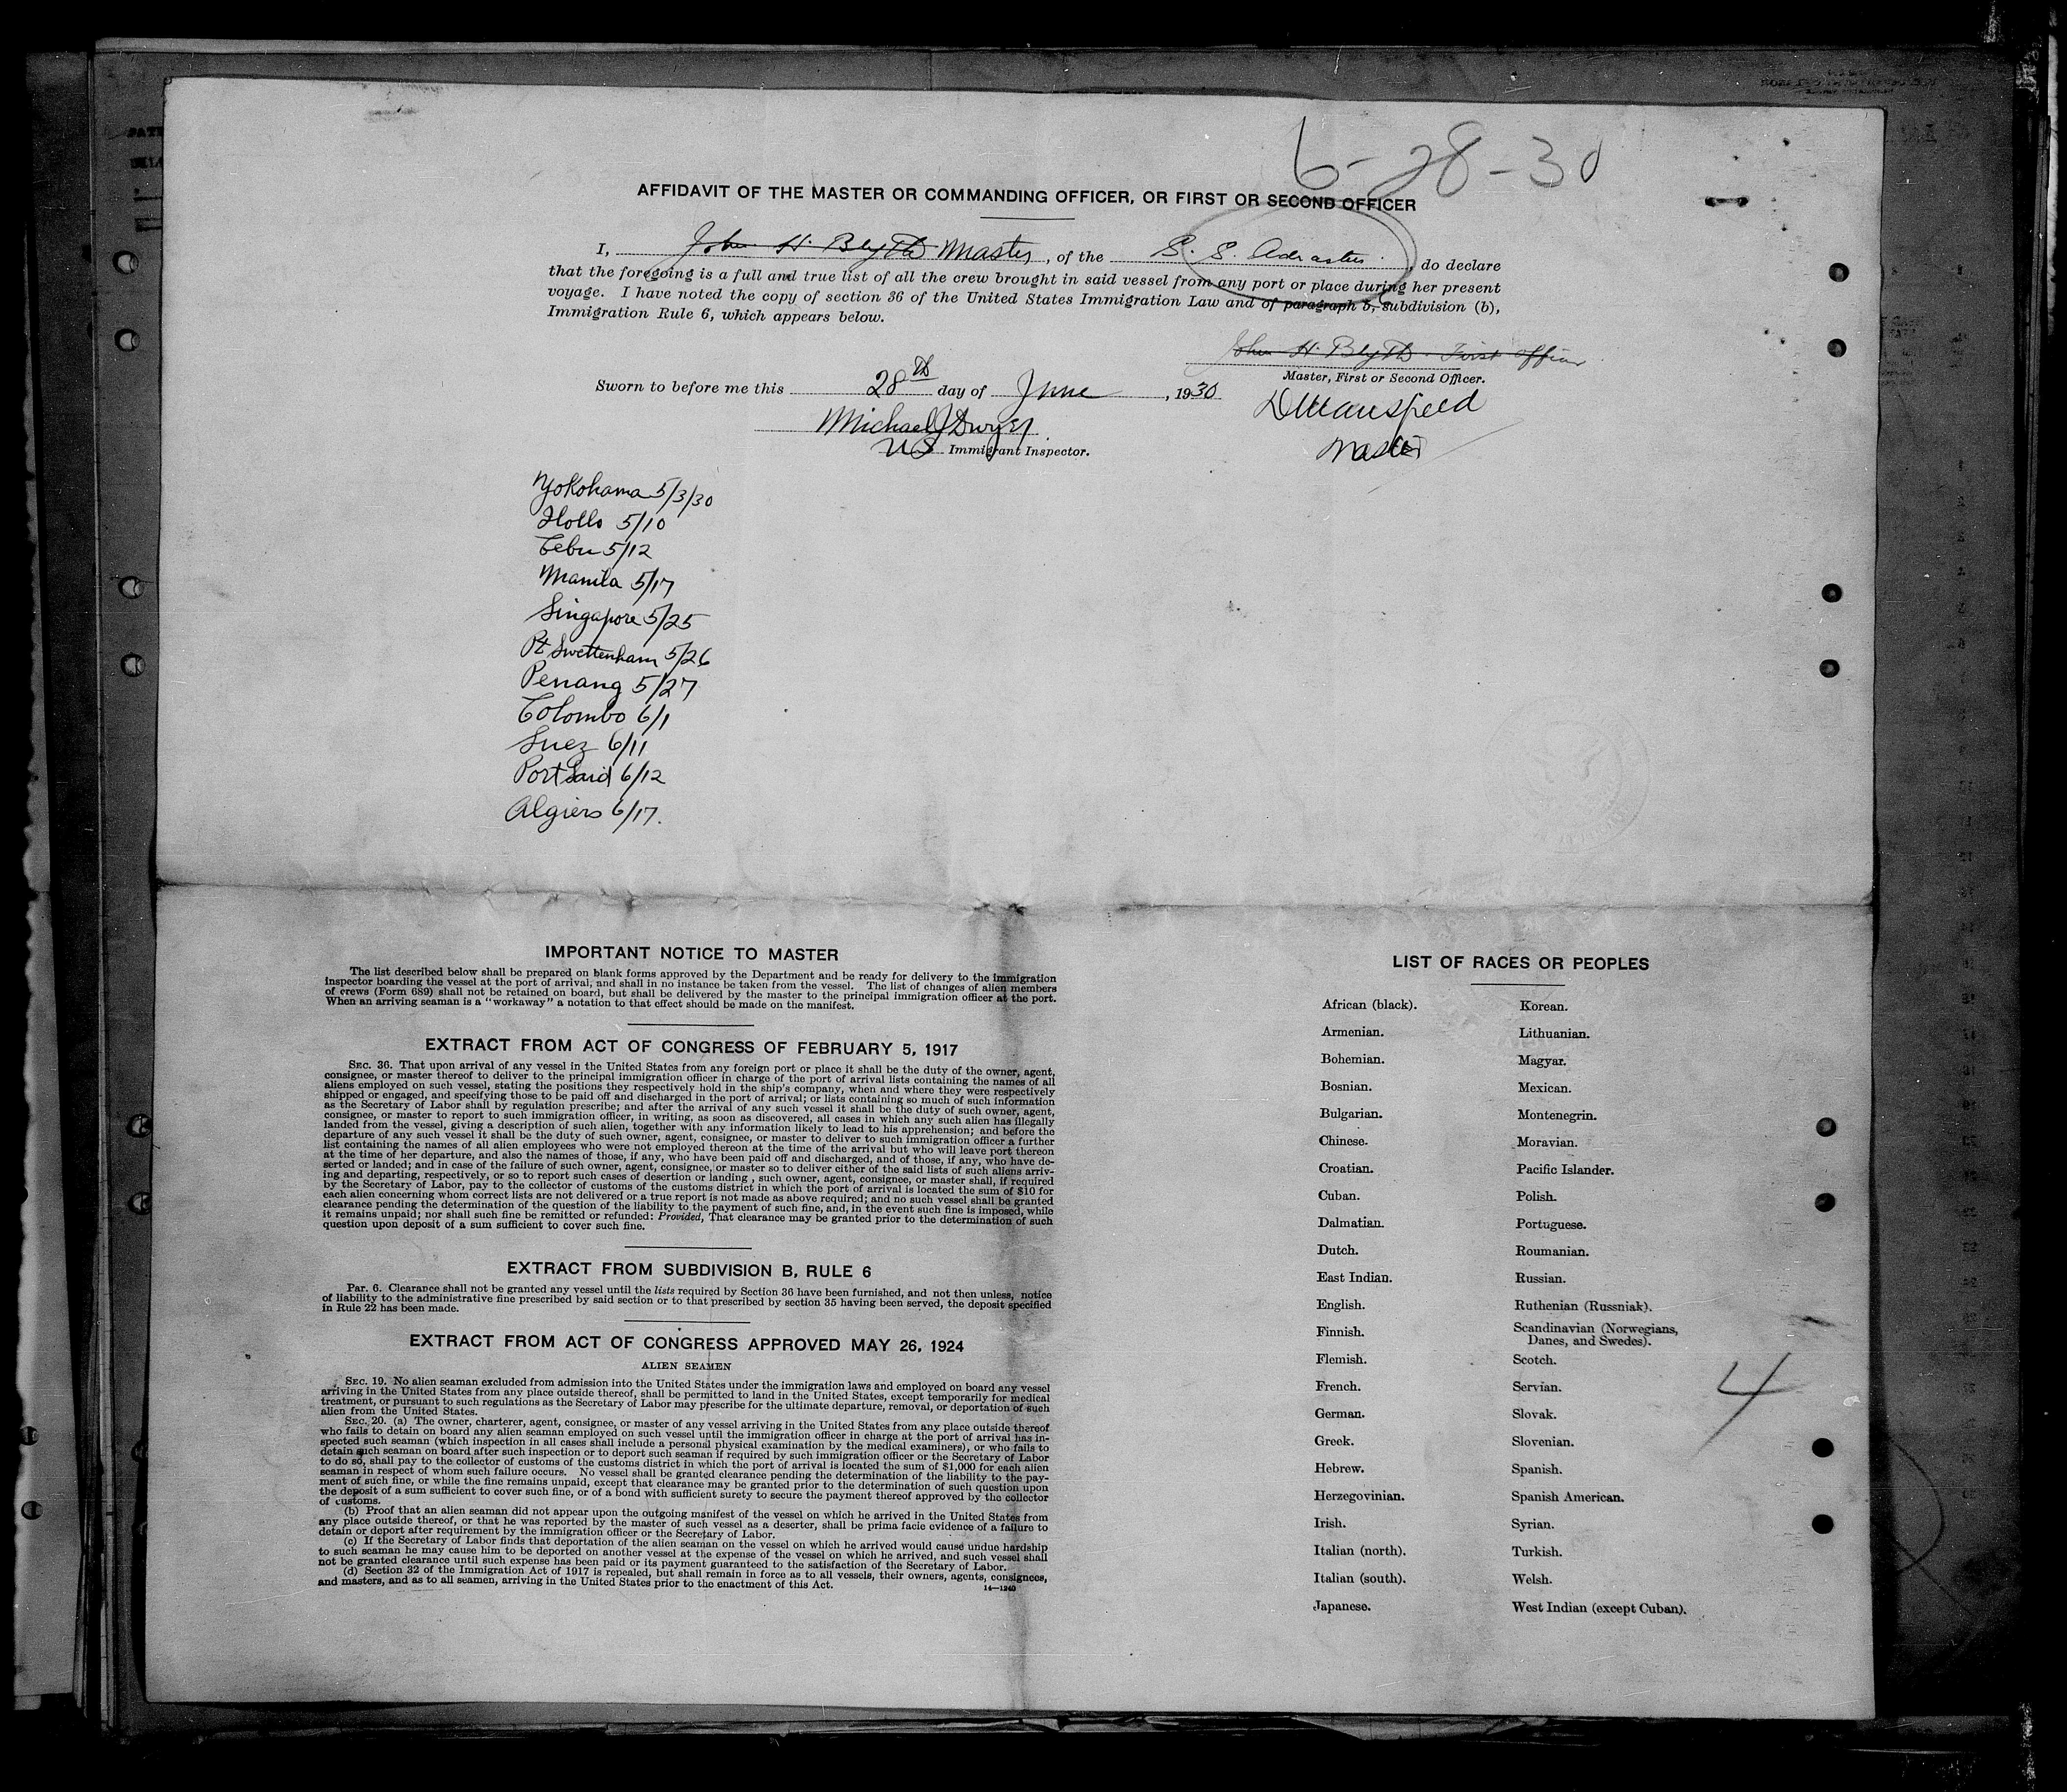 6-28-30
AFFIDAVIT OF THE MASTER OR COMMANDING OFFICER, OR FIRST OR SECOND OFFICER
I, John H. Blyth Master, of the S. S. Adrastus, do declare
that the foregoing is a full and true list of all the crew brought in said vessel from any port or place during her present
voyage. I have noted the copy of section 36 of the United States Immigration Law and of paragraph 5, subdivision (b),
Immigration Rule 6, which appears below.
John H. Blyth First Officer
Master, First or Second Officer.
Sworn to before me this 28th day of June, 1930
Michael J Dwyer
US Immigrant Inspector.
Master
Yokohama 5/3/30
Iloilo 5/10
Cebu 5/12
Manila 5/17
Singapore 5/25
Pt Swettenham 5/26
Penang 5/27
Colombo 6/1
Suez 6/11
Port Said 6/12
Algiers 6/17.
IMPORTANT NOTICE TO MASTER
The list described below shall be prepared on blank forms approved by the Department and be ready for delivery to the immigration
inspector boarding the vessel at the port of arrival, and shall in no instance be taken from the vessel. The list of changes of alien members
of crews (Form 689) shall not be retained on board, but shall be delivered by the master to the principal immigration officer at the port.
When an arriving seaman is a "workaway" a notation to that effect should be made on the manifest.
EXTRACT FROM ACT OF CONGRESS OF FEBRUARY 5, 1917
SEC. 36. That upon arrival of any vessel in the United States from any foreign port or place it shall be the duty of the owner, agent,
consignee, or master thereof to deliver to the principal immigration officer in charge of the port of arrival lists containing the names of all
aliens employed on such vessel, stating the positions they respectively hold in the ship's company, when and where they were respectively
shipped or engaged, and specifying those to be paid off and discharged in the port of arrival; or lists containing so much of such information
as the Secretary of Labor shall by regulation prescribe; and after the arrival of any such vessel it shall be the duty of such owner, agent,
consignee, or master to report to such immigration officer, in writing, as soon as discovered, all cases in which any such alien has illegally
landed from the vessel, giving a description of such alien, together with any information likely to lead to his apprehension; and before the
departure of any such vessel it shall be the duty of such owner, agent, consignee, or master to deliver to such immigration officer a further
list containing the names of all alien employees who were not employed thereon at the time of the arrival but who will leave port thereon
at the time of her departure, and also the names of those, if any, who have been paid off and discharged, and of those, if any, who have de-
serted or landed; and in case of the failure of such owner, agent, consignee, or master so to deliver either of the said lists of such aliens arriv-
ing and departing, respectively, or so to report such cases of desertion or landing, such owner, agent, consignee, or master shall, if required
by the Secretary of Labor, pay to the collector of customs of the customs district in which the port of arrival is located the sum of $10 for
each alien concerning whom correct lists are not delivered or a true report is not made as above required; and no such vessel shall be granted
clearance pending the determination of the question of the liability to the payment of such fine, and, in the event such fine is imposed, while
it remains unpaid; nor shall such fine be remitted or refunded: Provided, That clearance may be granted prior to the determination of such
question upon deposit of a sum sufficient to cover such fine.
EXTRACT FROM SUBDIVISION B, RULE 6
PAR. 6. Clearance shall not be granted any vessel until the lists required by Section 36 have been furnished, and not then unless, notice
of liability to the administrative fine prescribed by said section or to that prescribed by section 35 having been served, the deposit specified
in Rule 22 has been made.
EXTRACT FROM ACT OF CONGRESS APPROVED MAY 26, 1924
ALIEN SEAMEN
SEC. 19. No alien seaman excluded from admission into the United States under the immigration laws and employed on board any vessel
arriving in the United States from any place outside thereof, shall be permitted to land in the United States, except temporarily for medical
treatment, or pursuant to such regulations as the Secretary of Labor may prescribe for the ultimate departure, removal, or deportation of such
alien from the United States.
SEC. 20. (a) The owner, charterer, agent, consignee, or master of any vessel arriving in the United States from any place outside thereof
who fails to detain on board any alien seaman employed on such vessel until the immigration officer in charge at the port of arrival has in-
spected such seaman (which inspection in all cases shall include a personal physical examination by the medical examiners), or who fails to
detain such seaman on board after such inspection or to deport such seaman if required by such immigration officer or the Secretary of Labor
to do so, shall pay to the collector of customs of the customs district in which the port of arrival is located the sum of $1,000 for each alien
seaman in respect of whom such failure occurs. No vessel shall be granted clearance pending the determination of the liability to the pay-
ment of such fine, or while the fine remains unpaid, except that clearance may be granted prior to the determination of such question upon
the deposit of a sum sufficient to cover such fine, or of a bond with sufficient surety to secure the payment thereof approved by the collector
of customs.
(b) Proof that an alien seaman did not appear upon the outgoing manifest of the vessel on which he arrived in the United States from
any place outside thereof, or that he was reported by the master of such vessel as a deserter, shall be prima facie evidence of a failure to
detain or deport after requirement by the immigration officer or the Secretary of Labor.
(c) If the Secretary of Labor finds that deportation of the alien seaman on the vessel on which he arrived would cause undue hardship
to such seaman he may cause him to be deported on another vessel at the expense of the vessel on which he arrived, and such vessel shall
not be granted clearance until such expense has been paid or its payment guaranteed to the satisfaction of the Secretary of Labor.
(d) Section 32 of the Immigration Act of 1917 is repealed, but shall remain in force as to all vessels, their owners, agents, consignees,
and masters, and as to all seamen, arriving in the United States prior to the enactment of this Act.
14—1240
LIST OF RACES OR PEOPLES
African (black). Korean.
Armenian. Lithuanian.
Bohemian. Magyar.
Bosnian. Mexican.
Bulgarian. Montenegrin.
Chinese. Moravian.
Croatian. Pacific Islander.
Cuban. Polish.
Dalmatian. Portuguese.
Dutch. Roumanian.
East Indian. Russian.
English. Ruthenian (Russniak).
Finnish. Scandinavian (Norwegians,
Danes, and Swedes).
Flemish. Scotch.
French. Servian.
German. Slovak.
Greek. Slovenian.
Hebrew. Spanish.
Herzegovinian. Spanish American.
Irish. Syrian.
Italian (north). Turkish.
Italian (south). Welsh.
Japanese. West Indian (except Cuban).
4